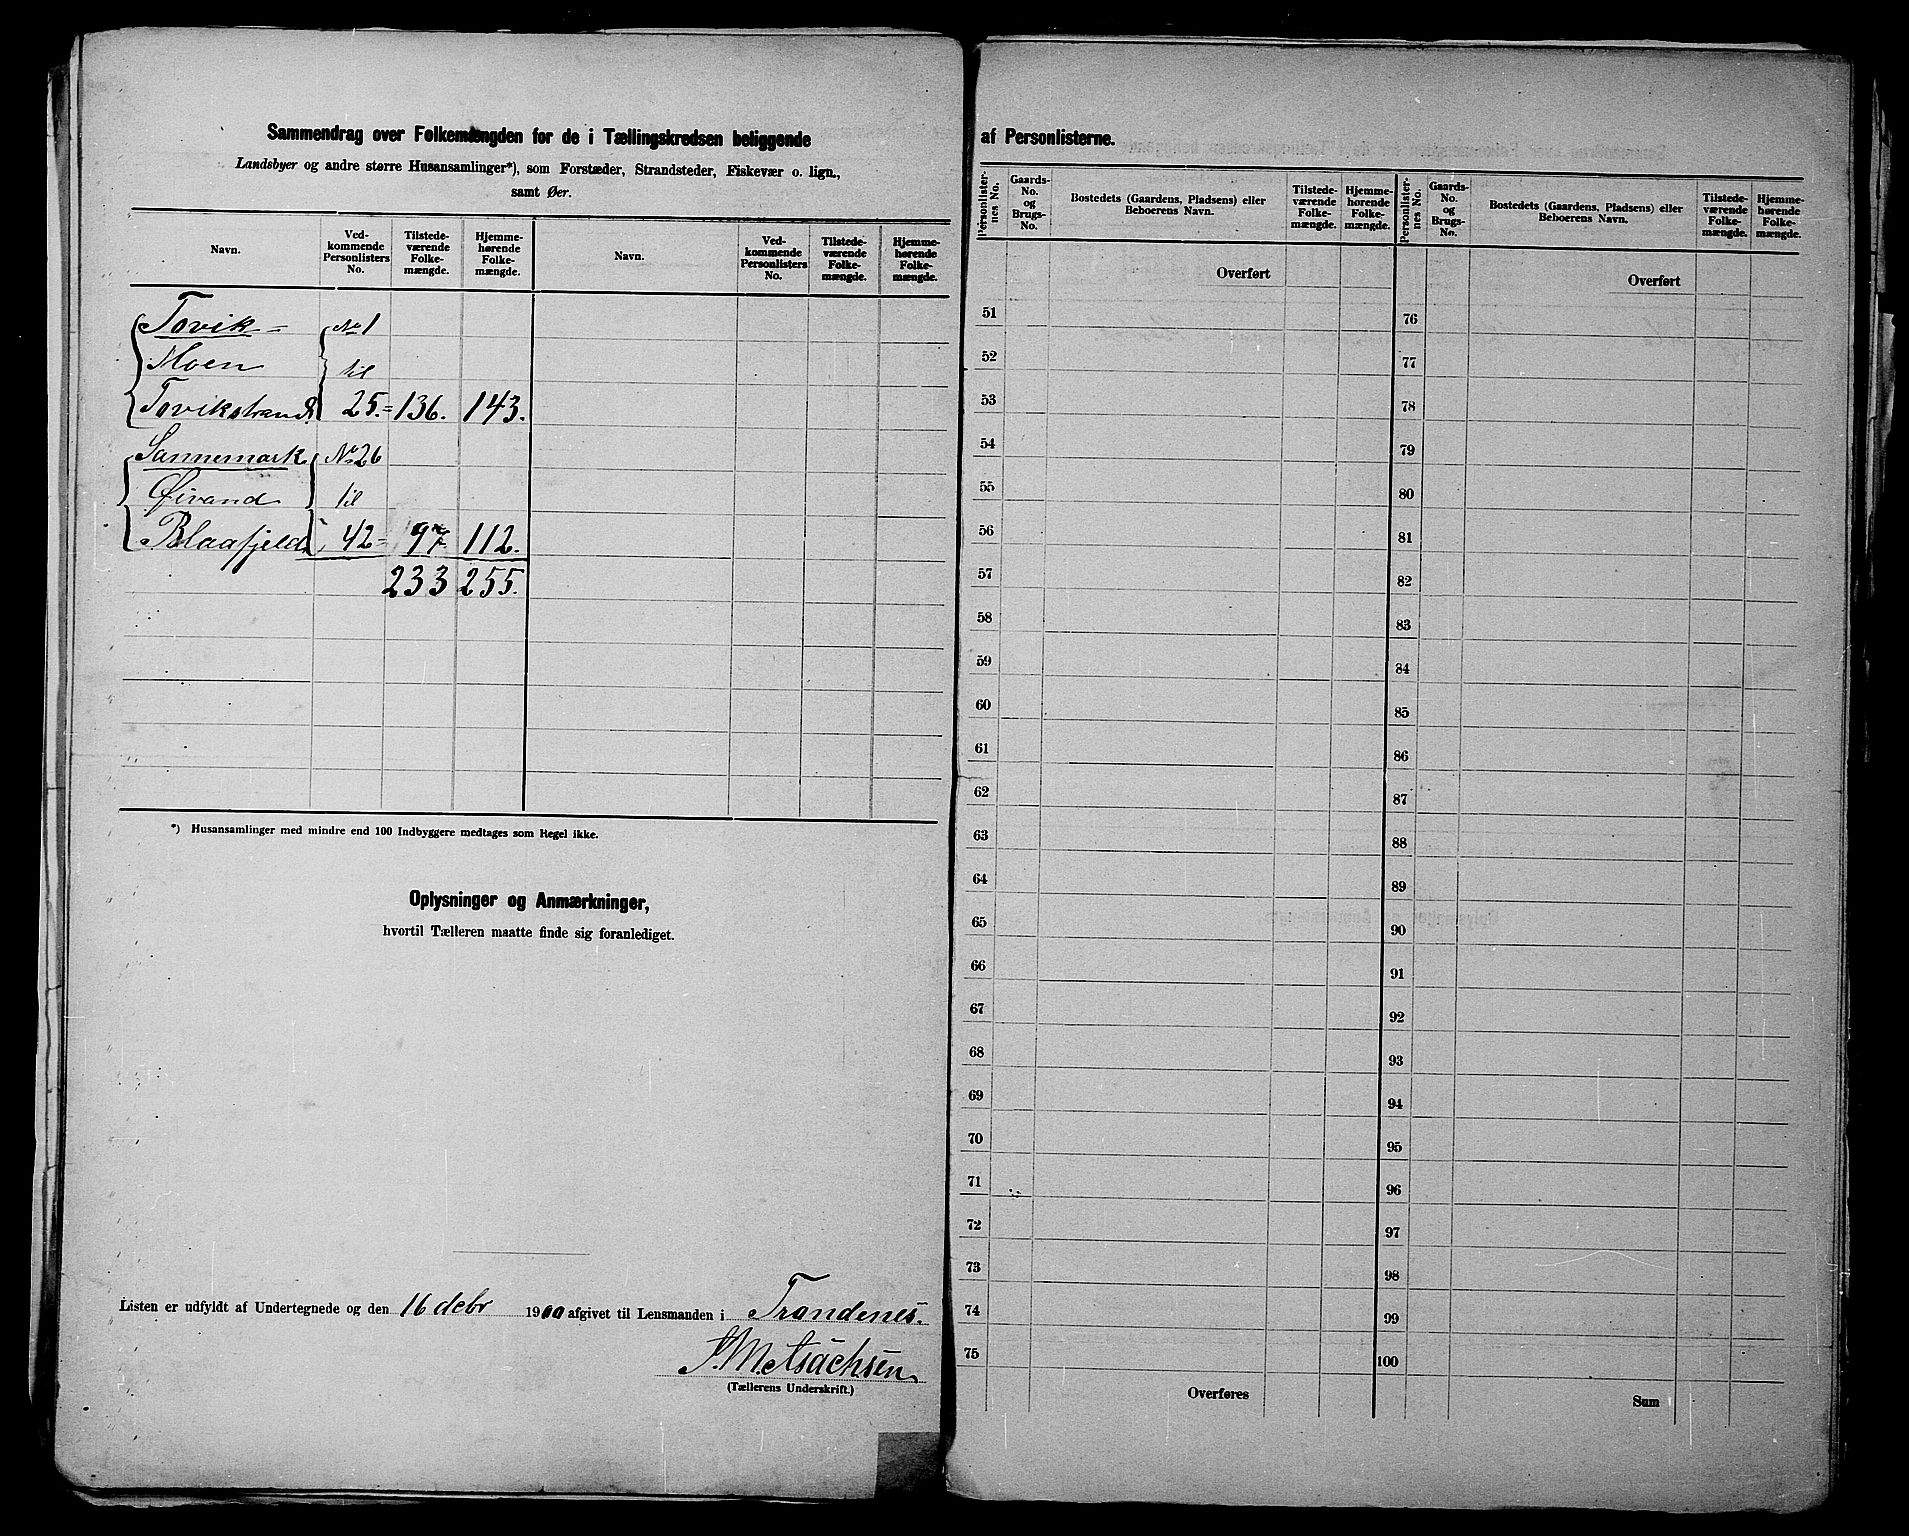 Sammendrag over Folkemængden for de i Tællingskredsen beliggende
Landsbyer og andre større Husansamlinger*), som Forstæder, Strandsteder, Fiskevær o. lign.,
samt Øer.
Navn. Ved-kommende Personlisters No. Tilstede-værende Folke-mængde. Hjemme-hørende Folke-mængde. Navn. Ved-kommende Personlisters No. Tilstede-værende Folke-mængde. Hjemme-hørende Folke-mængde.
Tovik No 1
Moen til
Tovikstrand 25. = 136. 143.
Sannemark No 26
Øivand til
Blaafjeld 42 = 97 112.
233 255.
*) Husansamlinger med mindre end 100 Indbyggere medtages som Regel ikke.
Oplysninger og Anmærkninger,
hvortil Tælleren maatte finde sig foranlediget.
Listen er udfyldt af Undertegnede og den 16 debr 1900 afgivet til Lensmanden i Trondenes.
(Tællerens Underskrift.)
af Personlisterne.
Personlister-nes No. Gaards-No. og Brugs-No. Bostedets (Gaardens, Pladsens) eller Beboerens Navn. Tilstede-værende Folke-mængde. Hjemme-hørende Folke-mængde. Personlister-nes No. Gaards-No. og Brugs-No. Bostedets (Gaardens, Pladsens) eller Beboerens Navn. Tilstede-værende Folke-mængde. Hjemme-hørende Folke-mængde.
Overført Overført
51 76
52 77
53 78
54 79
55 80
56 81
57 82
58 83
59 84
60 85
61 86
62 87
63 88
64 89
65 90
66 91
67 92
68 93
69 94
70 95
71 96
72 97
73 98
74 99
75 100
Overføres Sum